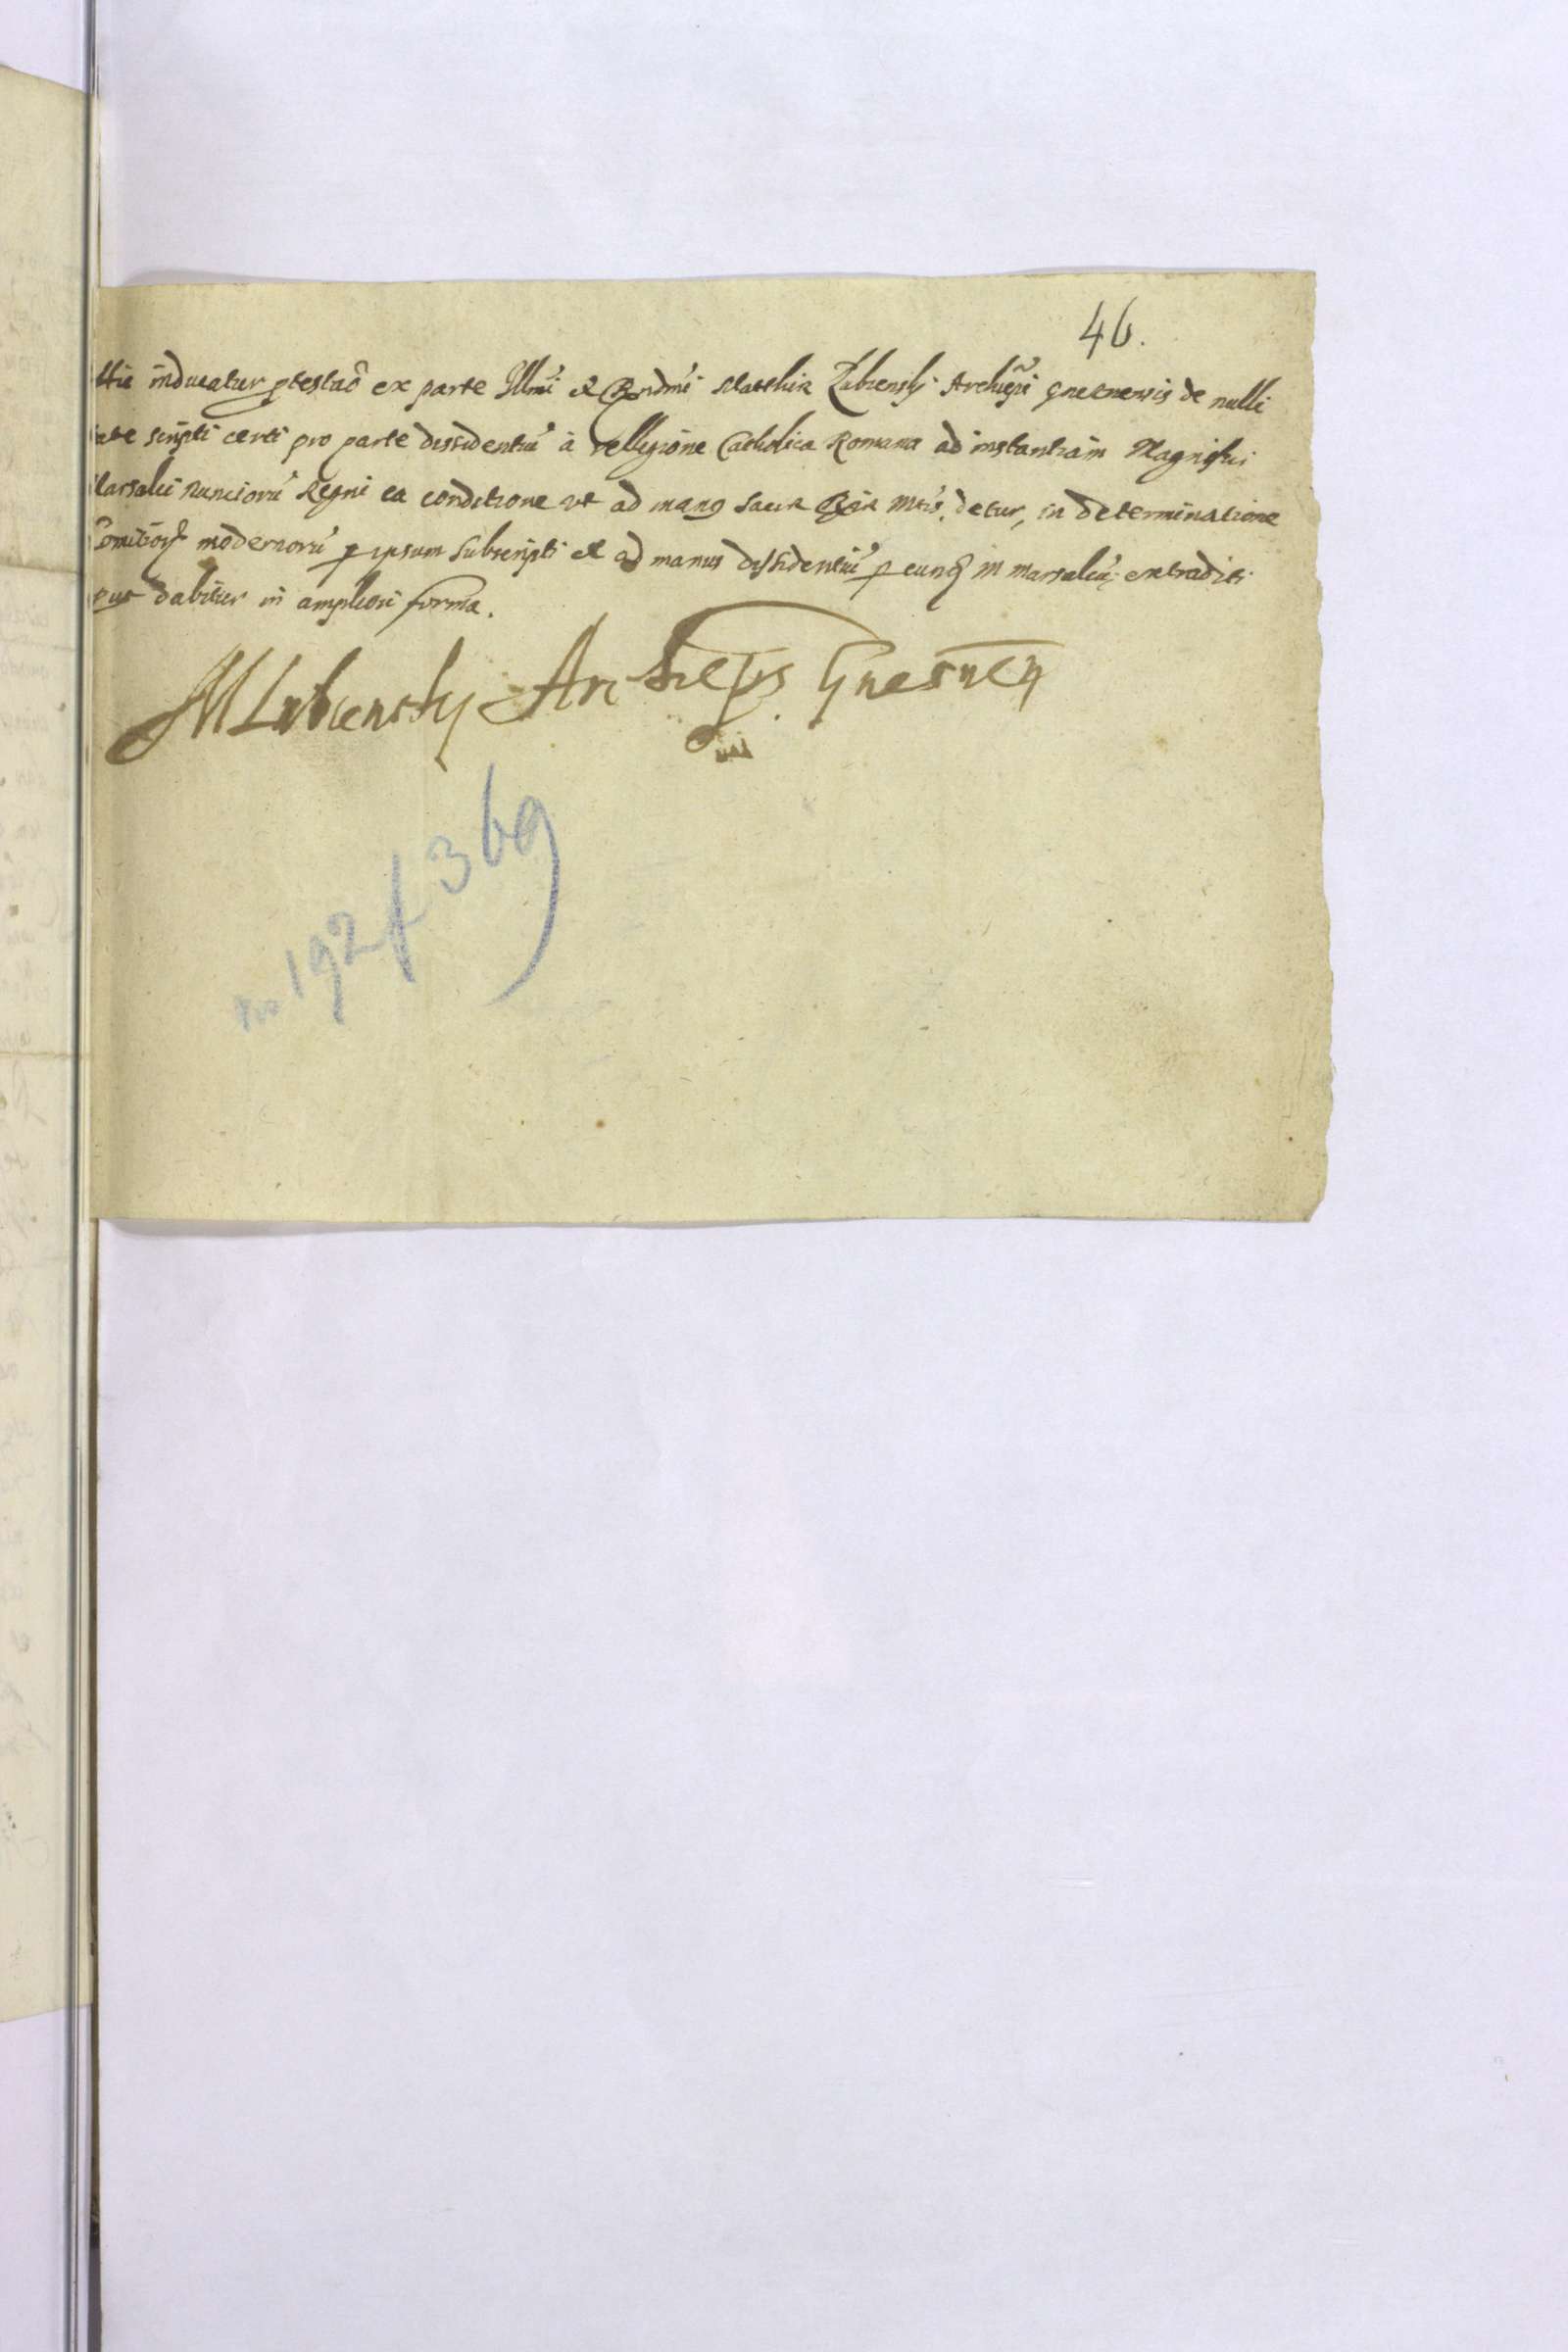 46.
Hic inducatur ptestao ex parte Illmi et Rndmi Matthiæ Łubiensky Archiepi Gneznensis de nulli
tate scripti certi pro parte dissidentiu à relligione Catholica Romana ad instantiam Magnifici
Marsalci Nunciorū Regni ea conditione ut ad manq Sacræ Rgiæ Mtis detur, in determinatione
Comitiorꝝ modernorū p ipsum subscripti et ad manus dissidentiū p eunq m marsalcū extraditi
dabitur in ampliori forma.
MLubiensky Archieps Gnesnen
No 192 f 369